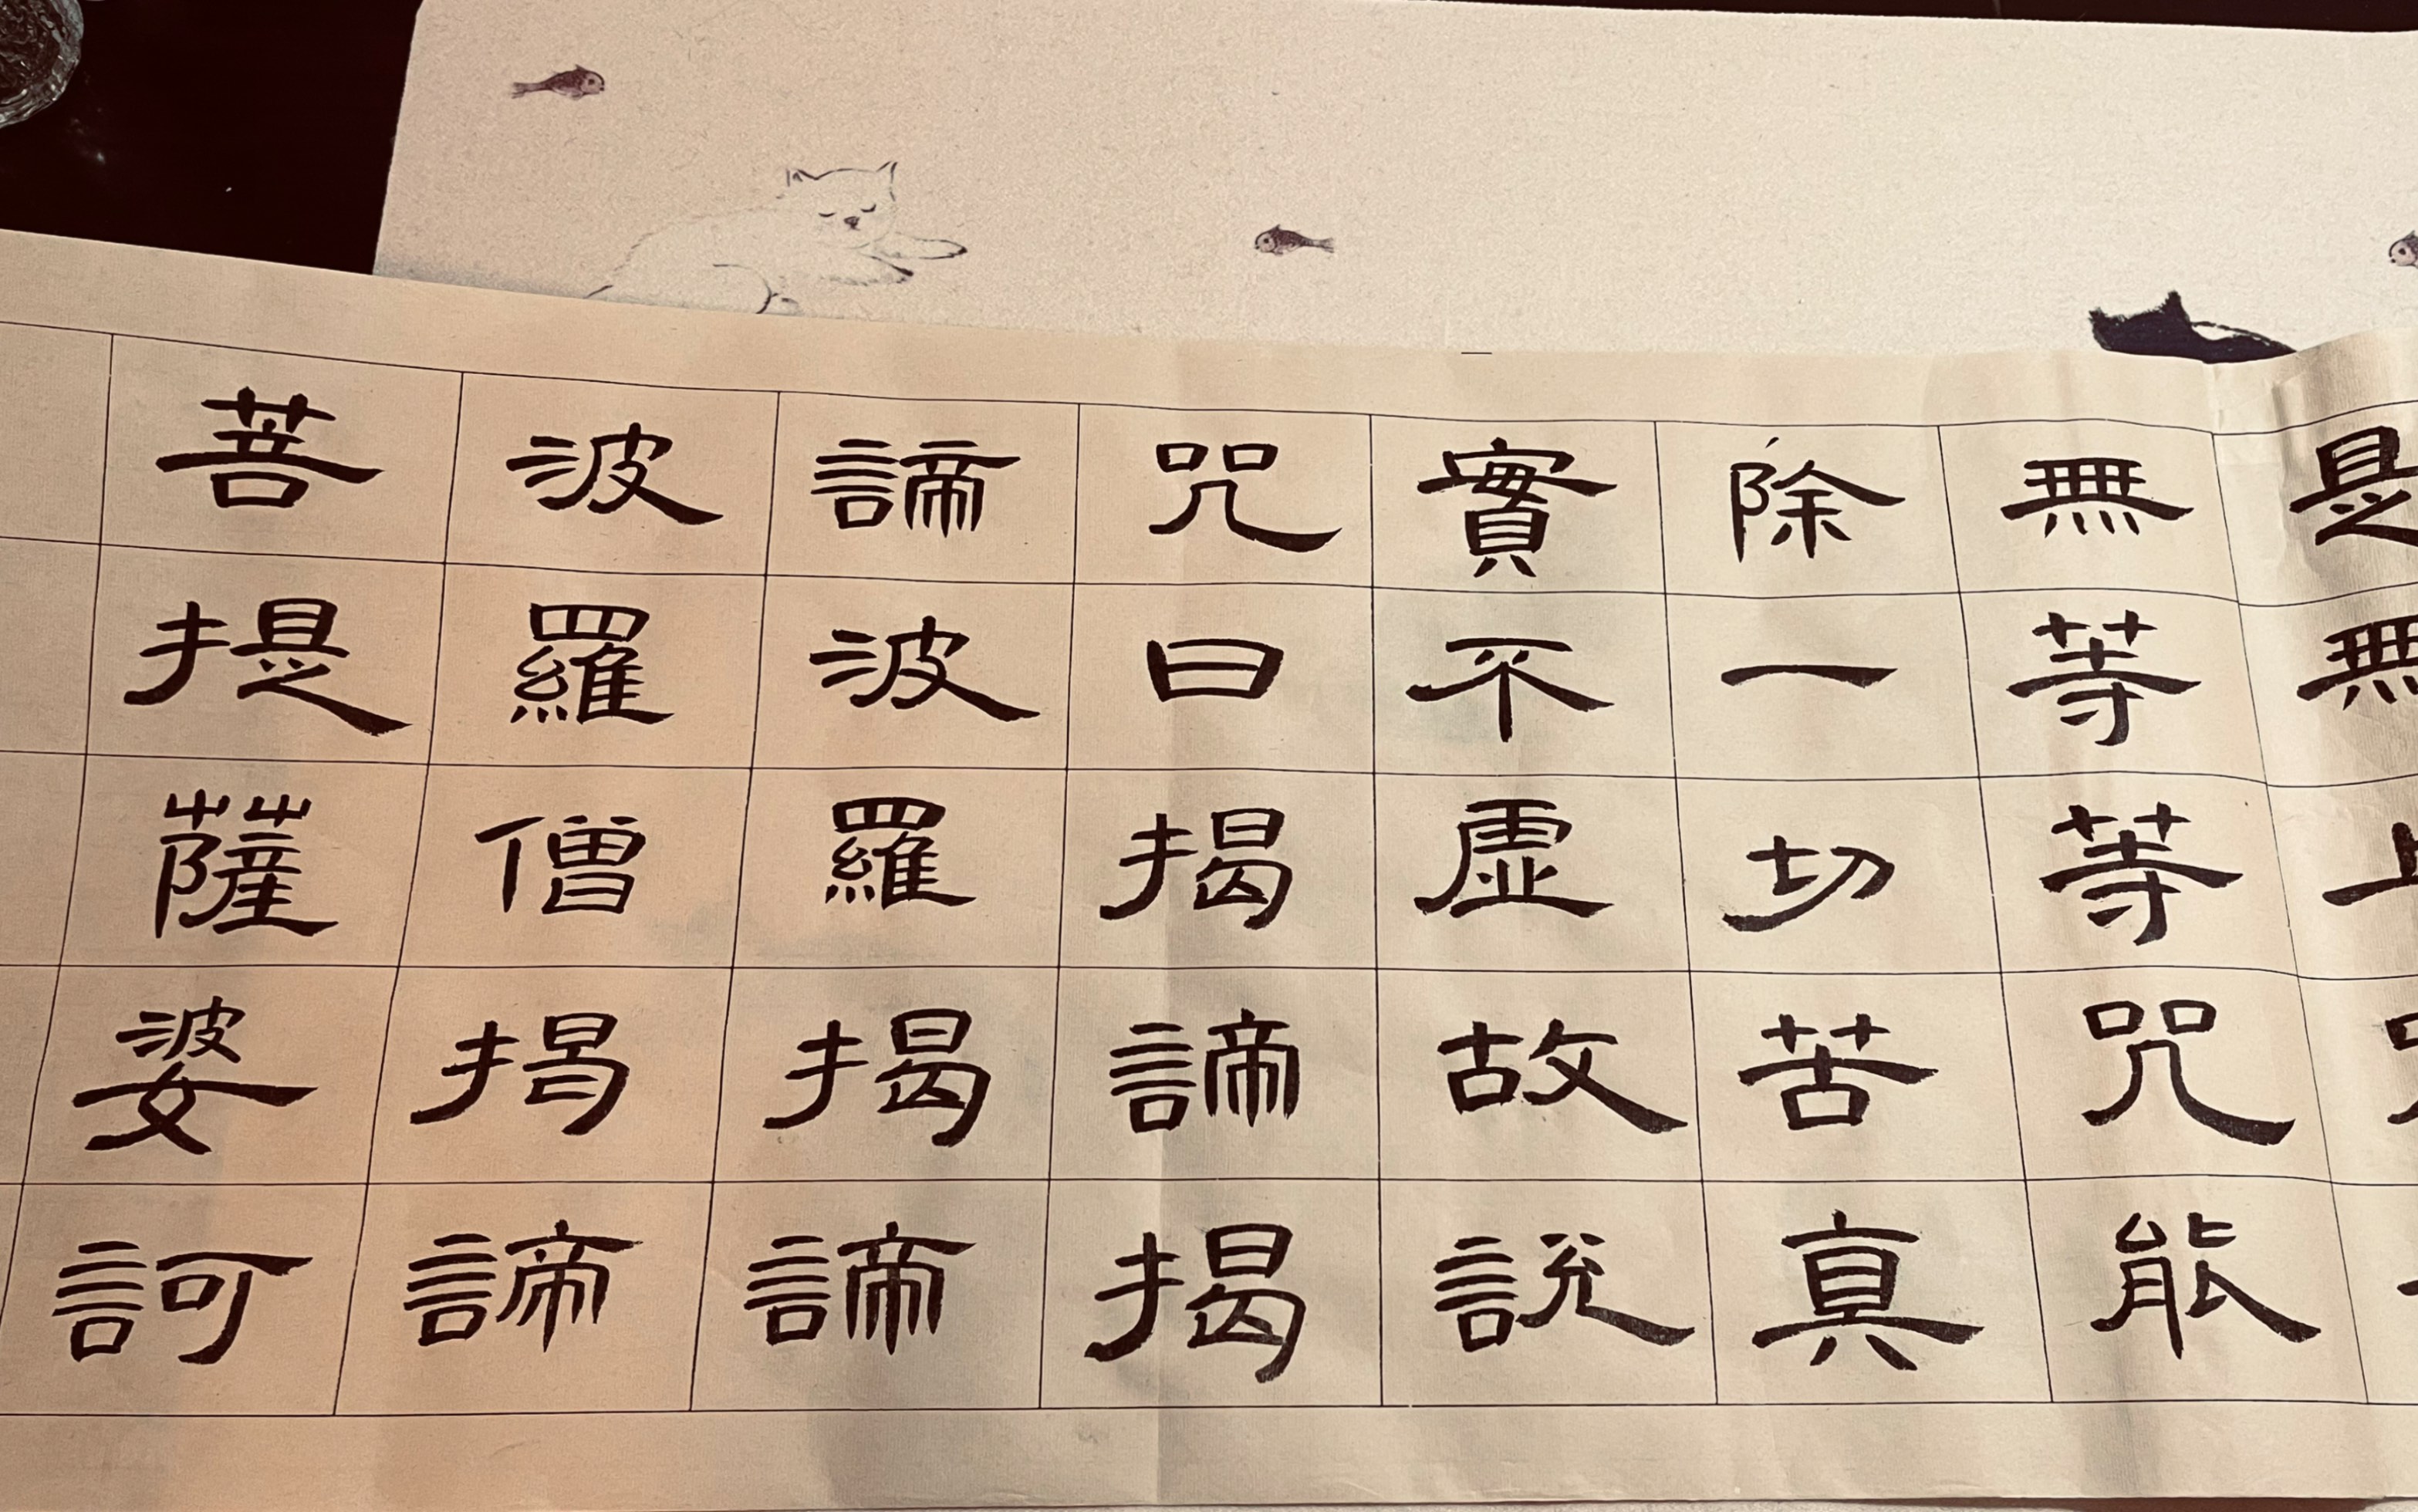 是無上咒
無等等咒能
除一切苦真
實不虛故說
咒曰揭諦揭
諦波羅揭諦
波羅僧揭諦
菩提薩婆訶